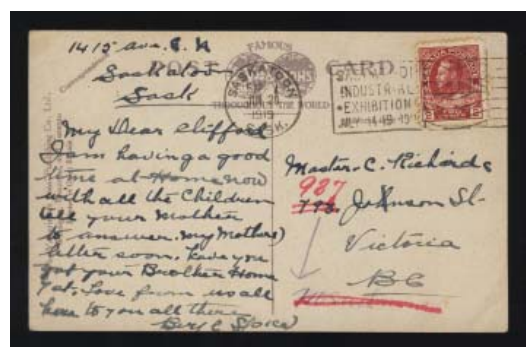 1415 Ave. C. N
Saskatoon
Sask
POST CARD
FAMOUS
THROUGHOUT THE WORLD
SASKATOON
1919
SASK.
INDUSTRIAL
EXHIBITION
JULY 14-19-19
My Dear Clifford
I am having a good
time at Home now
with all the Children
tell your Mother
to answer my Mothers
letter soon, have you
got your Brother Home
yet, Love from us all
here to you all there
Master C. Richards
937
Johnson St.
Victoria
BC